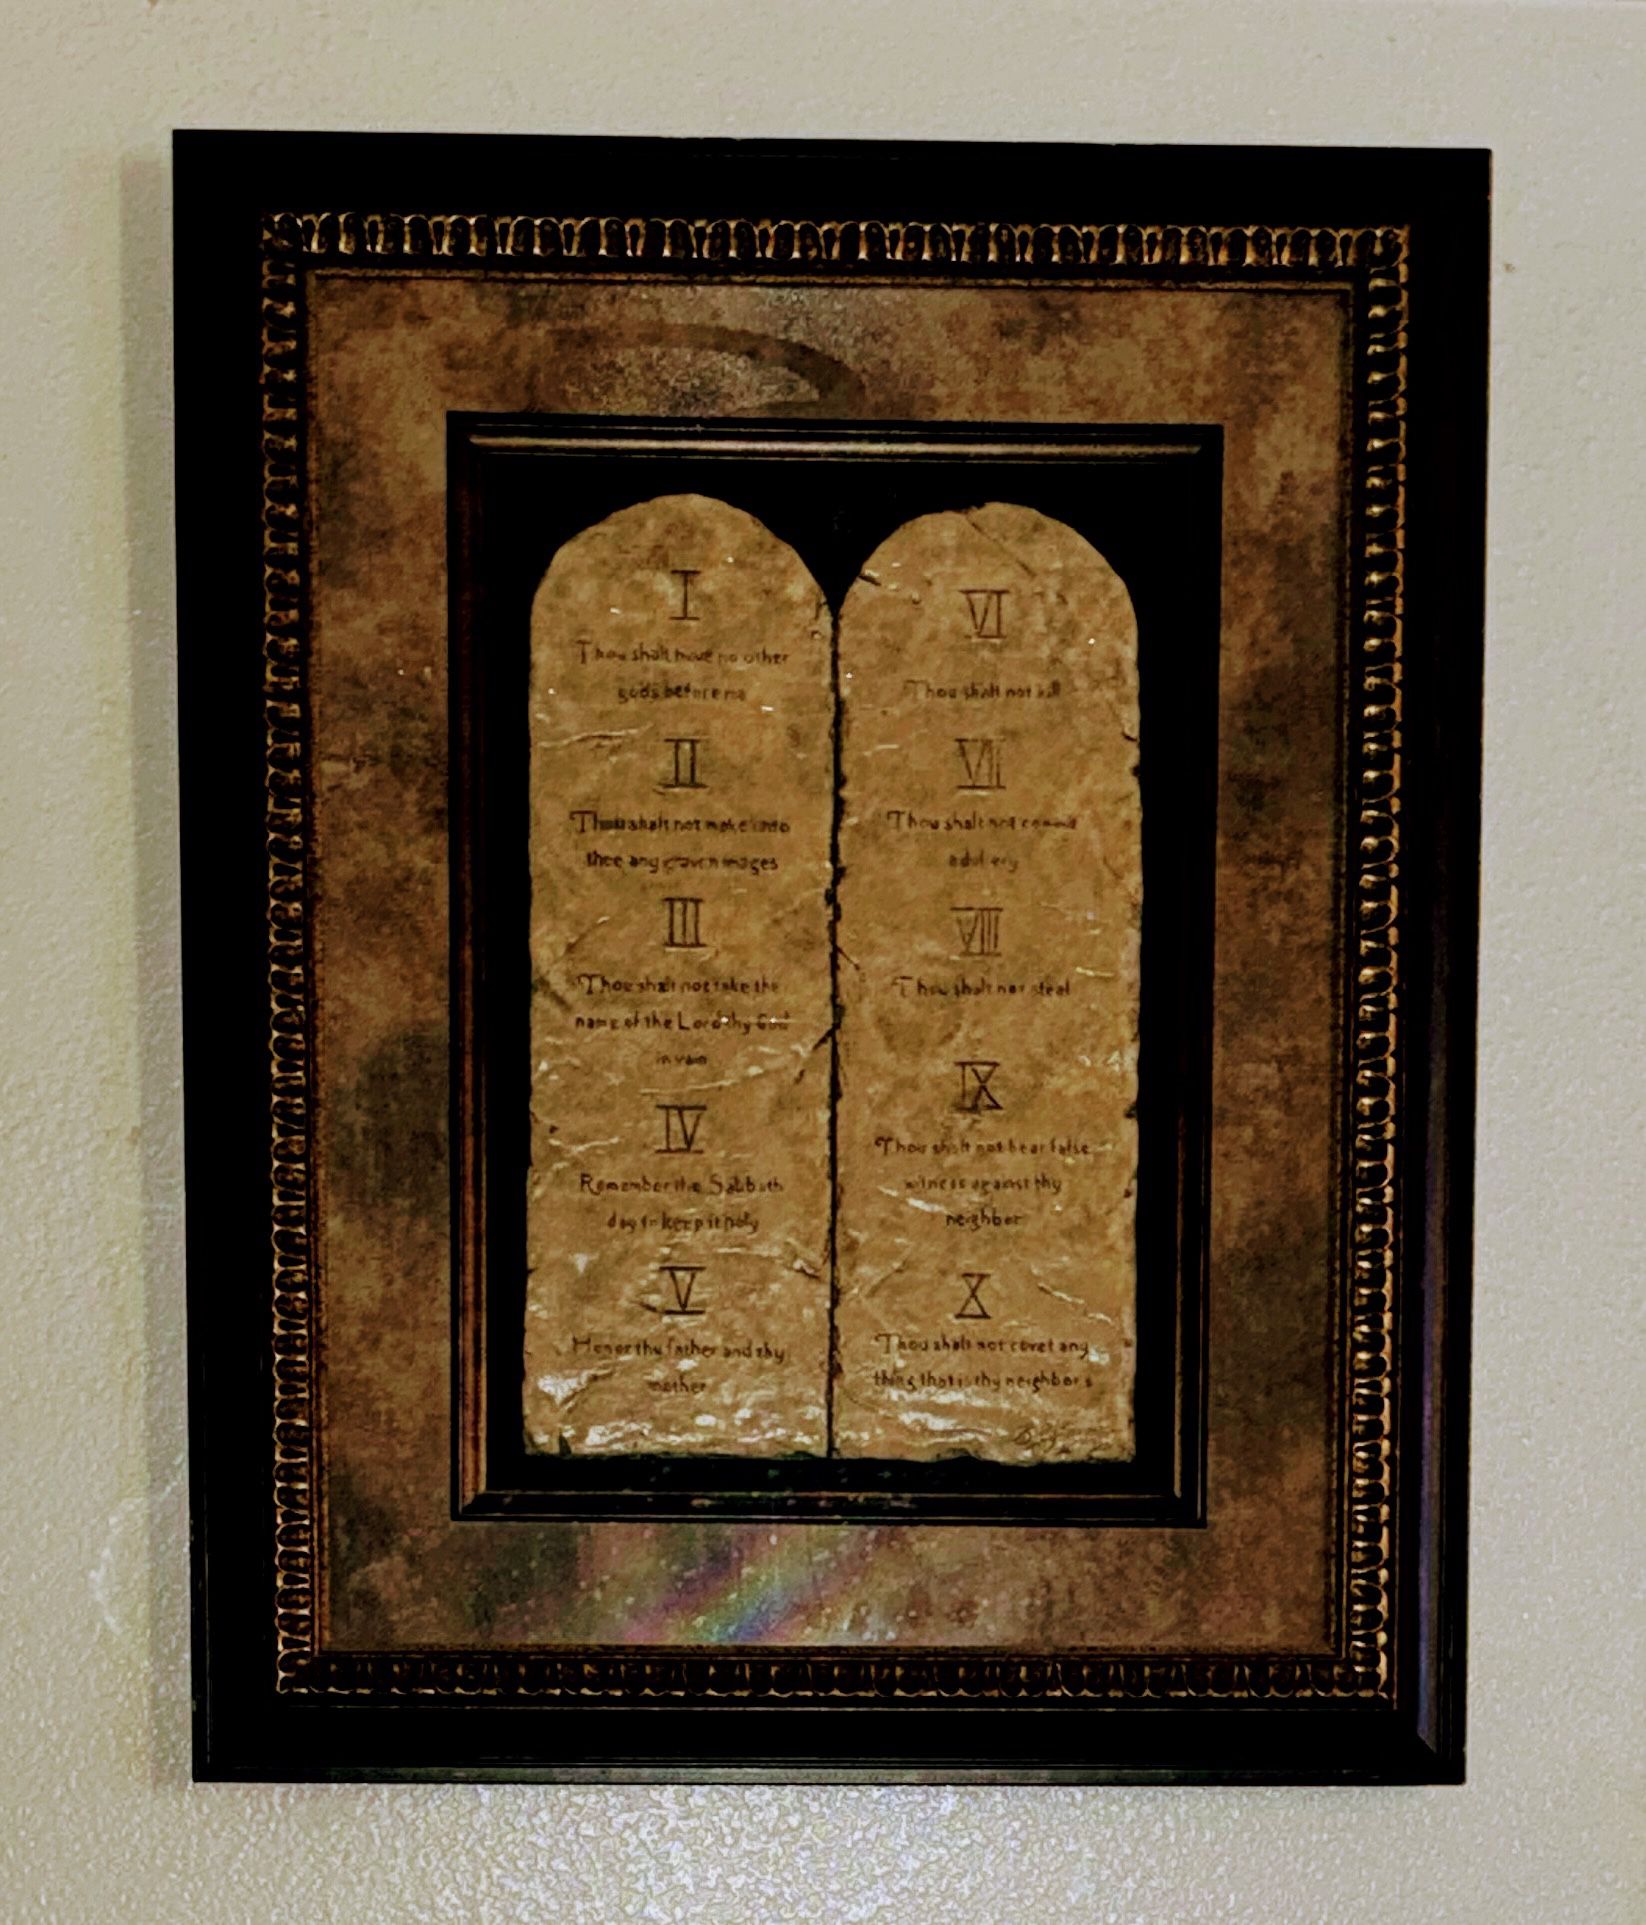 I
Thou shalt have no other
gods before me
II
Thou shalt not make unto
thee any graven images
III
Thou shalt not take the
name of the Lord thy God
in vain
IV
Remember the Sabbath
day to keep it holy
V
Honor thy father and thy
mother
VI
Thou shalt not kill
VII
Thou shalt not commit
adultery
VIII
Thou shalt not steal
IX
Thou shalt not bear false
witness against thy
neighbor
X
Thou shalt not covet any
thing that is thy neighbors